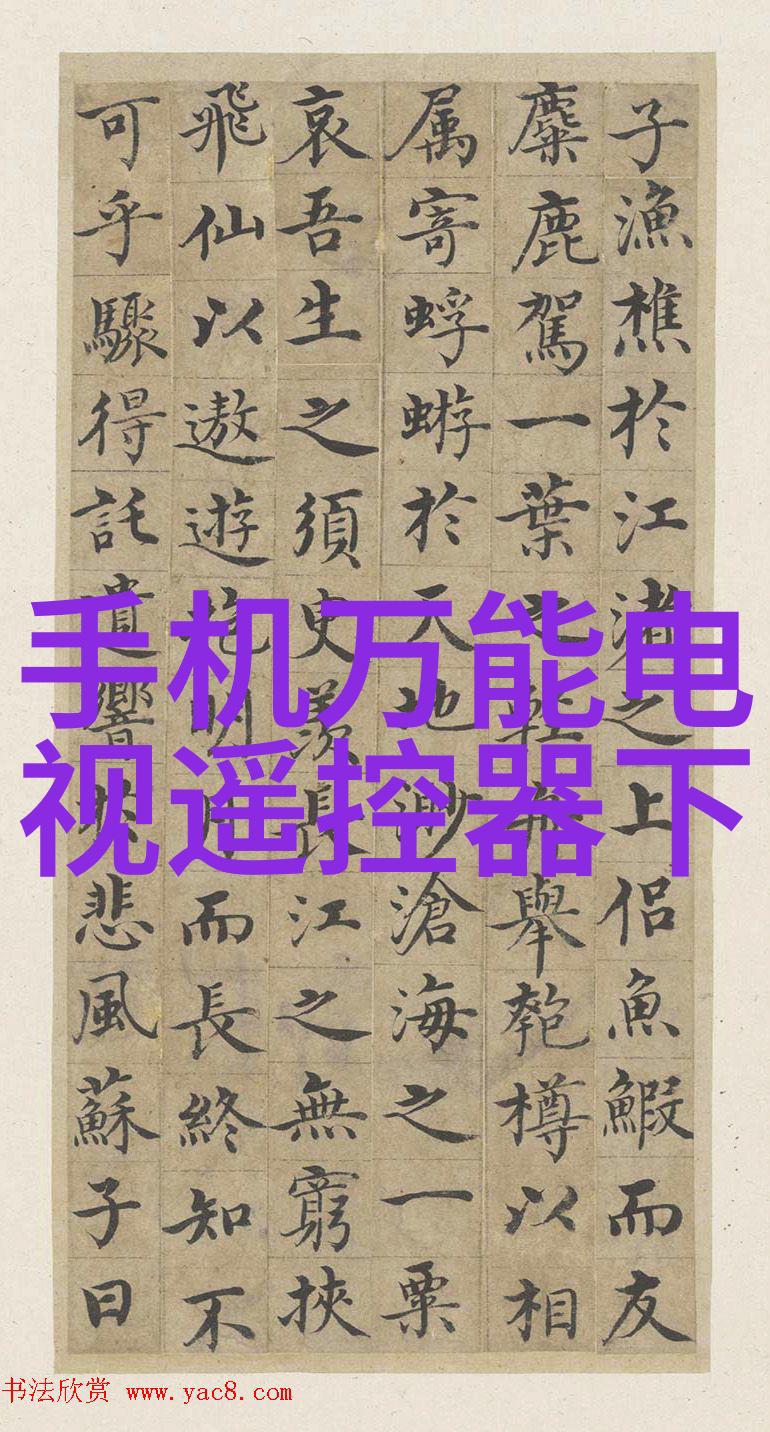 子漁樵於江渚之上侶魚鰕而友
麋鹿駕一葉之輕舟舉匏樽以相
属寄蜉蝣於天地渺滄海之一粟
哀吾生之須臾羨長江之無窮挾
飛仙以遨遊抱明月而長終知不
可乎驟得託遺響於悲風蘇子曰
手机万能电
视遥控器下
书法欣赏 www.yac8.com